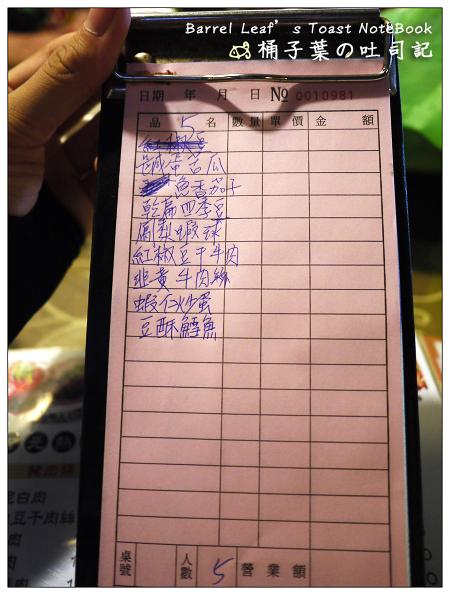 Barrel Leaf's Toast NoteBook
桶子葉の吐司記
日期 年 月 日 № 0010981
品 名 數量 單價 金 額
5
鹹蛋苦瓜
魚香茄子
乾扁四季豆
鳳梨蝦球
紅椒豆干牛肉
韭黃牛肉絲
蝦仁炒蛋
豆酥鱈魚
桌號 人數 5 營業額
豆白肉
豆干肉絲
肉